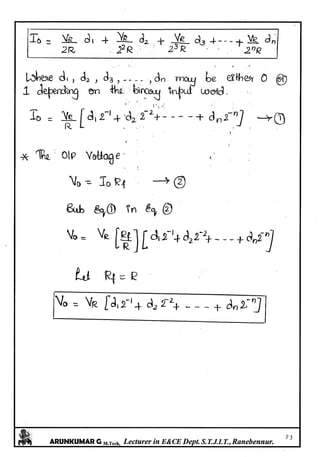 I₀ = VR/2R d₁ + VR/2²R d₂ + VR/2³R d₃ + - - - + VR/2ⁿR dn
Where d₁, d₂, d₃, - - - -, dn may be either 0 (or)
1 depending on the binary input word.
I₀ = VR/R [d₁ 2⁻¹ + d₂ 2⁻² + - - - - + dn 2⁻ⁿ] → ①
* The O/P Voltage
V₀ = I₀ Rf → ②
Sub Eq ① in Eq ②
V₀ = VR [Rf/R] [d₁ 2⁻¹ + d₂ 2⁻² + - - - + dn 2⁻ⁿ]
Let Rf = R
V₀ = VR [d₁ 2⁻¹ + d₂ 2⁻² + - - - + dn 2⁻ⁿ]
23
ARUNKUMAR G M.Tech, Lecturer in E&CE Dept. S.T.J.I.T., Ranebennur.